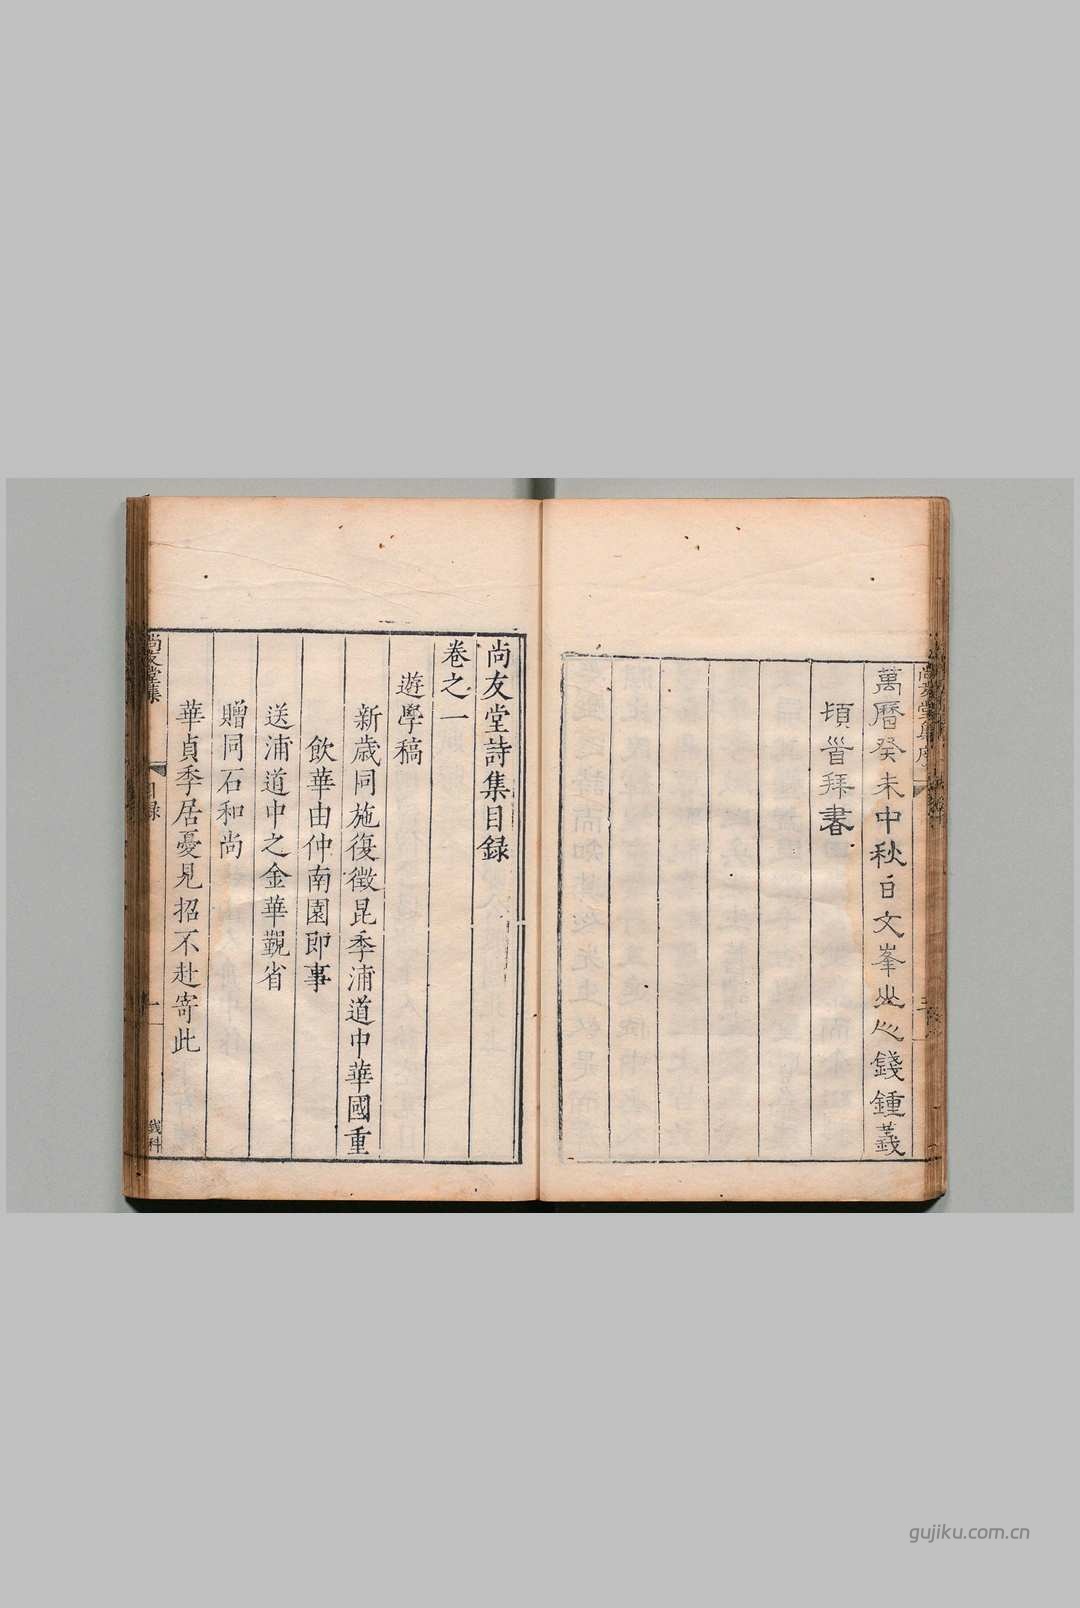 萬曆癸未中秋日文峯山人錢鍾義
頓首拜書
尚友堂詩集目録
卷之一
遊學稿
新歳同施復徵昆季浦道中華國重
飲華由仲南園即事
送浦道中之金華覲省
贈同石和尚
華貞季居憂見招不赴寄此
尚友堂集
目録
一
gujiku.com.cn